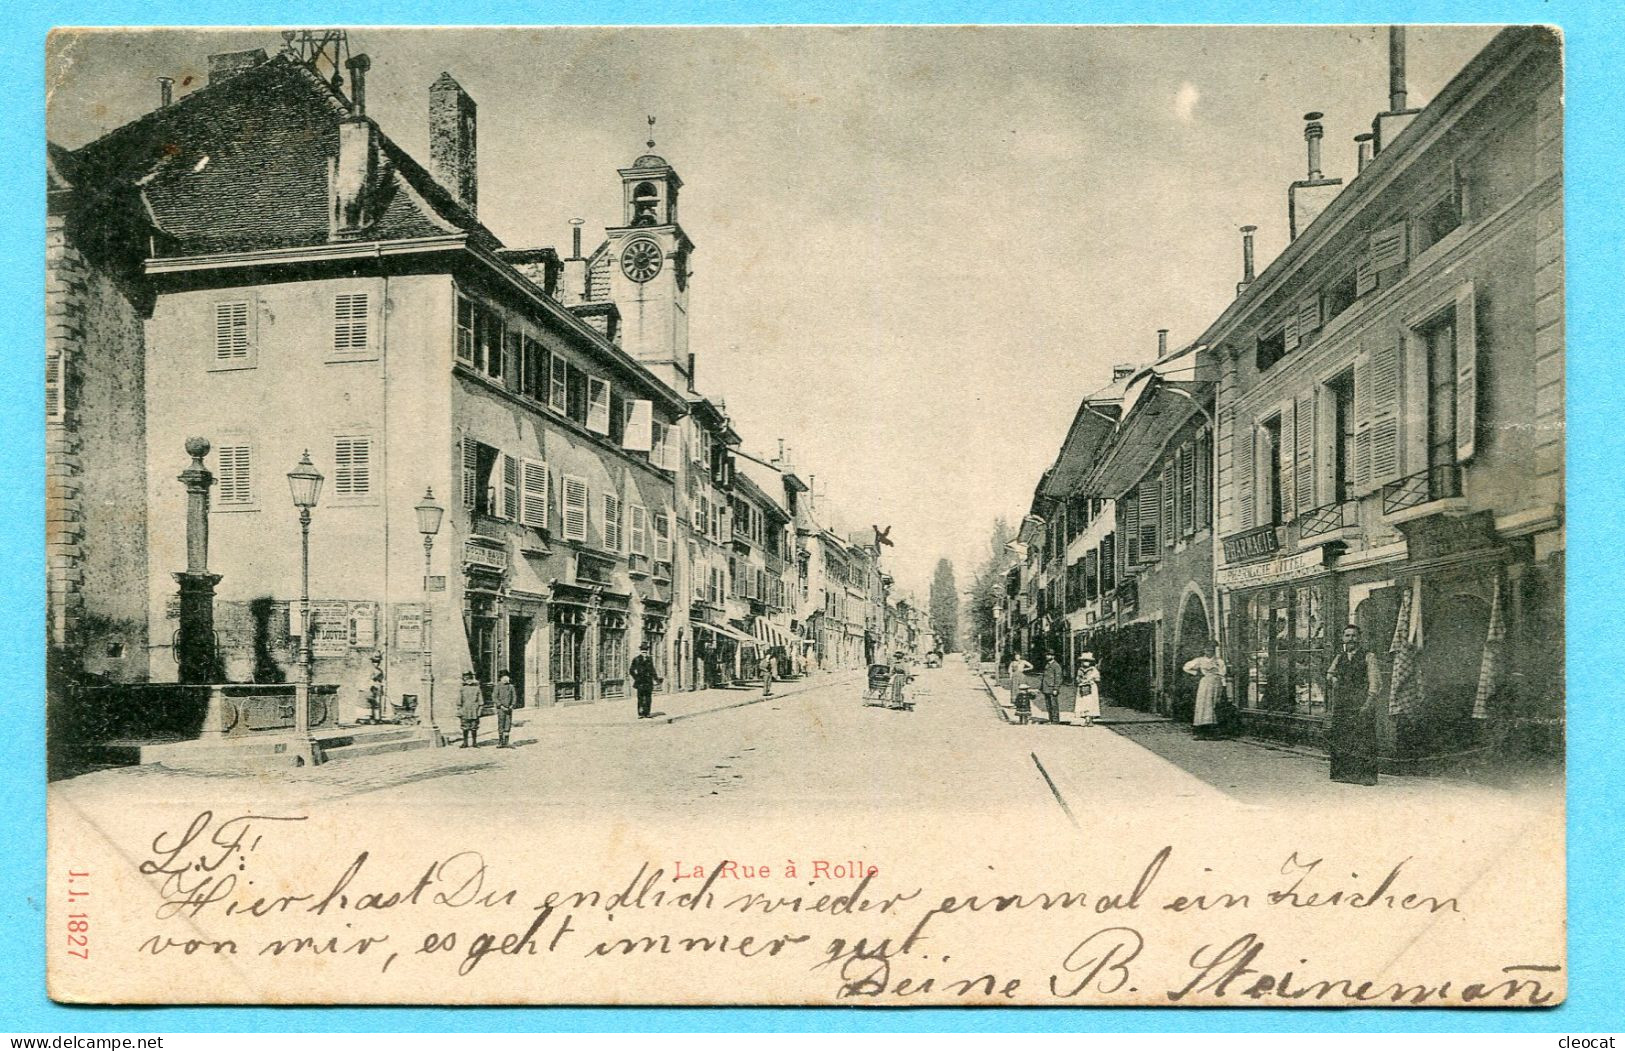 PHARMACIE
PHARMACIE VITTEL
LOUVRE
La Rue à Rolle
J. J. 1827
L. F.!
Hier hast Du endlich wieder einmal ein Zeichen
von mir, es geht immer gut.
Deine B. Steinemann
cleocat